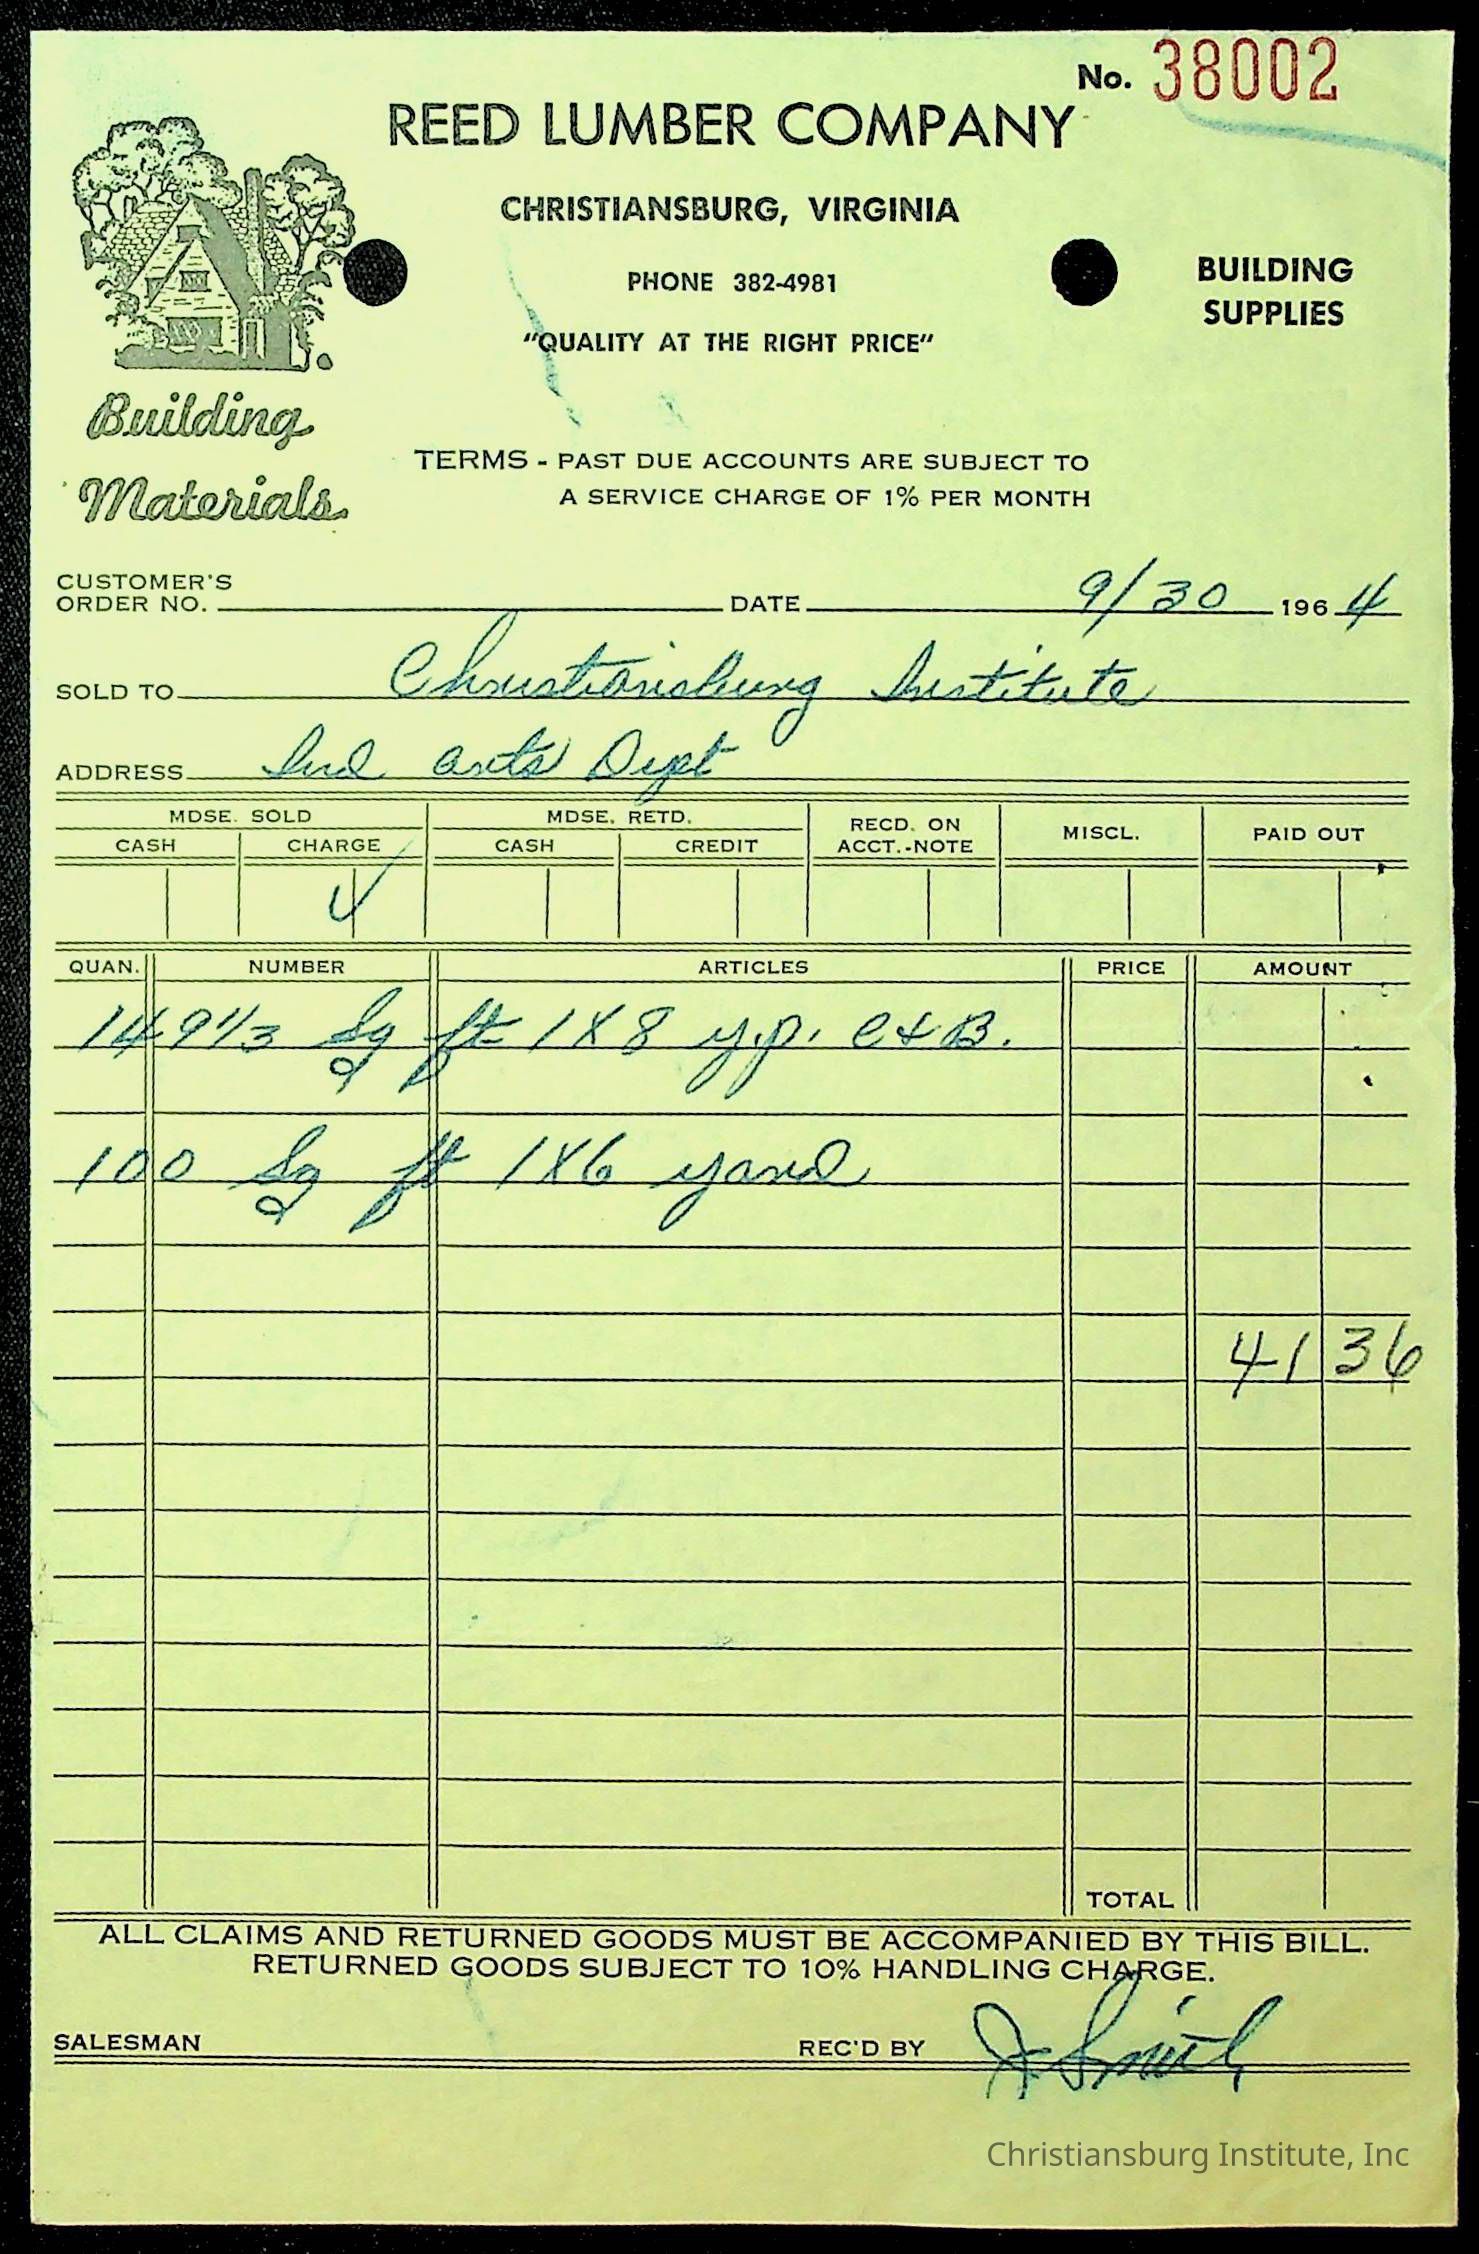 No. 38002
REED LUMBER COMPANY
CHRISTIANSBURG, VIRGINIA
PHONE 382-4981
"QUALITY AT THE RIGHT PRICE"
BUILDING
SUPPLIES
Building
Materials
TERMS - PAST DUE ACCOUNTS ARE SUBJECT TO
A SERVICE CHARGE OF 1% PER MONTH
CUSTOMER'S
ORDER NO. DATE 9/30 1964
SOLD TO Christiansburg Institute
ADDRESS Ind arts Dept
MDSE. SOLD MDSE. RETD. RECD. ON ACCT.-NOTE MISCL. PAID OUT
CASH CHARGE CASH CREDIT
✓
QUAN. NUMBER ARTICLES PRICE AMOUNT
149 1/3 Sq ft 1X8 y.p. C & B.
100 Sq ft 1X6 yard
41 36
TOTAL
ALL CLAIMS AND RETURNED GOODS MUST BE ACCOMPANIED BY THIS BILL.
RETURNED GOODS SUBJECT TO 10% HANDLING CHARGE.
SALESMAN REC'D BY J Smith
Christiansburg Institute, Inc